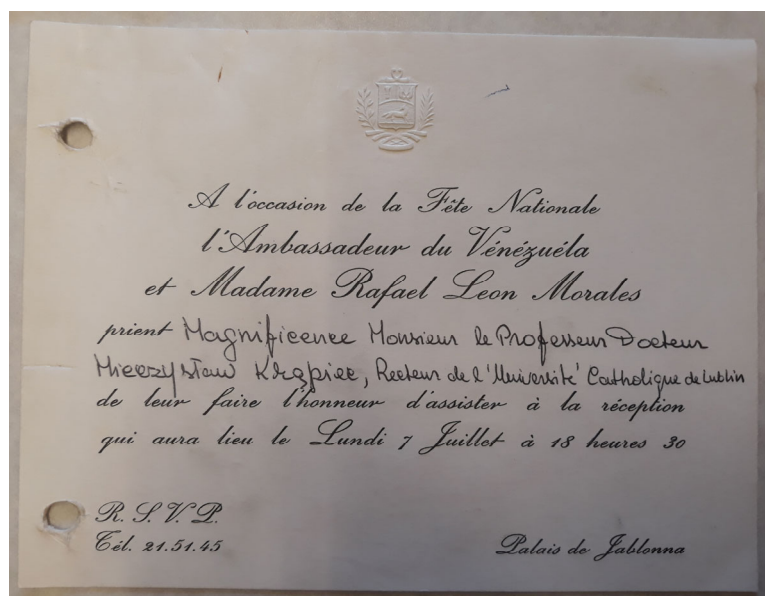 A l'occasion de la Fête Nationale
l'Ambassadeur du Vénézuéla
et Madame Rafael Leon Morales
prient Magnificence Monsieur le Professeur Docteur
Mieczysław Krąpiec, Recteur de l'Université Catholique de Lublin
de leur faire l'honneur d'assister à la réception
qui aura lieu le Lundi 7 Juillet à 18 heures 30
R. S. V. P.
Tél. 21.51.45
Palais de Jablonna